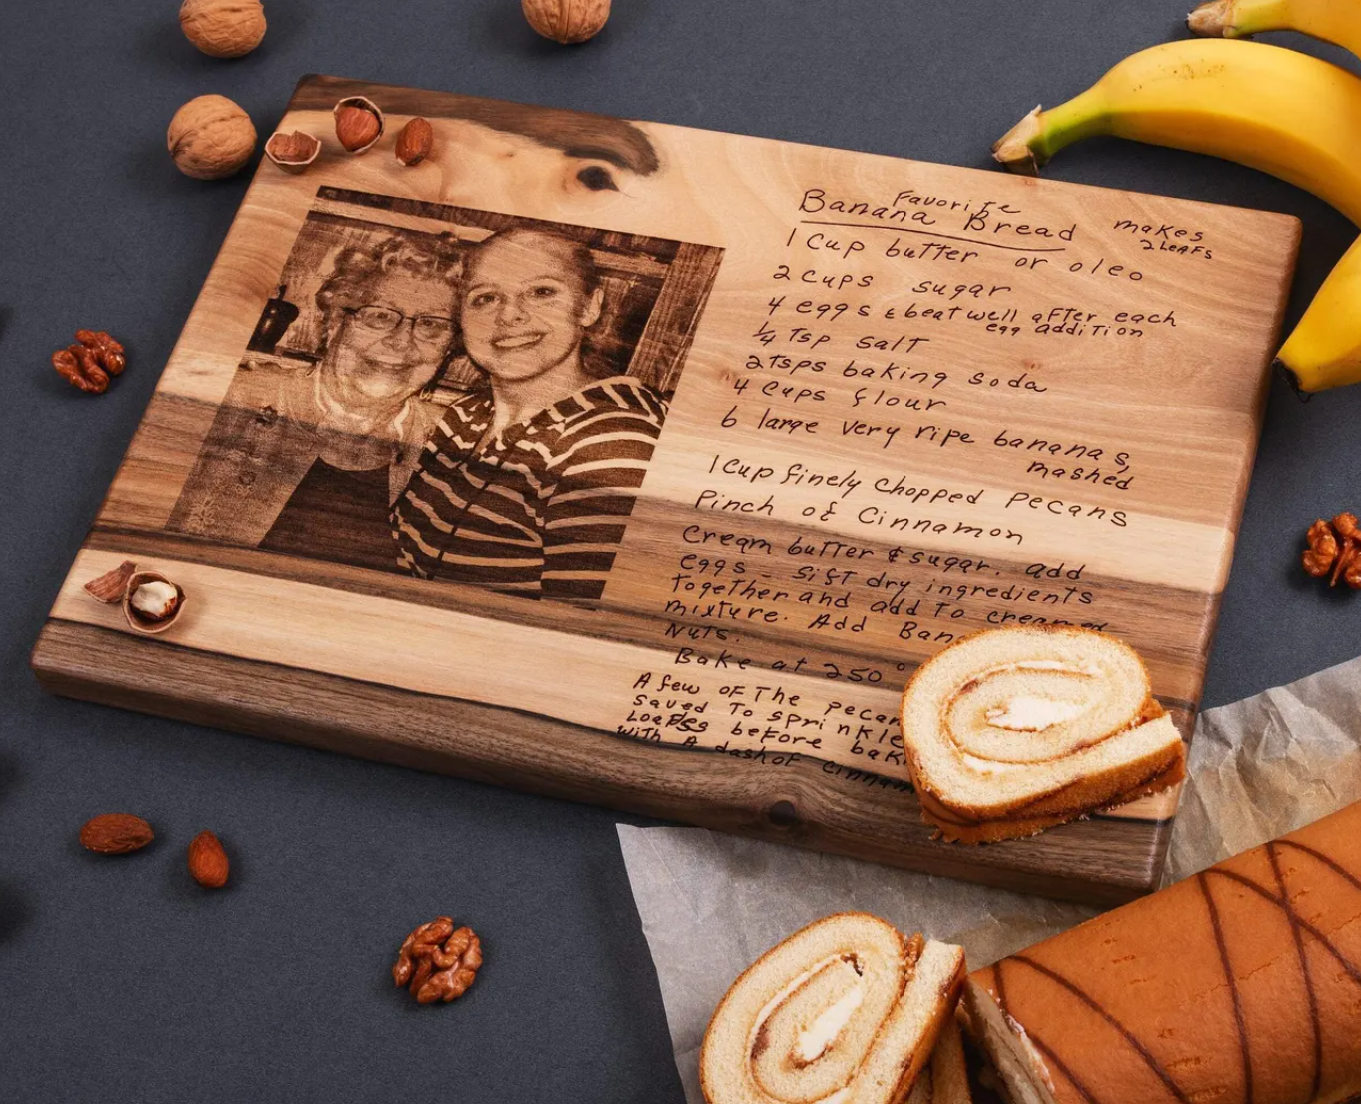 Favorite
Banana Bread
makes
2 LeAFs
1 Cup butter or oleo
2 cups sugar
4 eggs & beat well after each
egg addition
1/4 Tsp salt
2 Tsps baking soda
4 cups flour
6 large very ripe bananas,
mashed
1 Cup finely chopped pecans
Pinch of Cinnamon
Cream butter & sugar. add
eggs - sift dry ingredients
together and add to creamed
mixture. Add Ban
Nuts.
Bake at 250°
A few of The pecan
saved To sprinkle
before bak
with A dash of cinnam